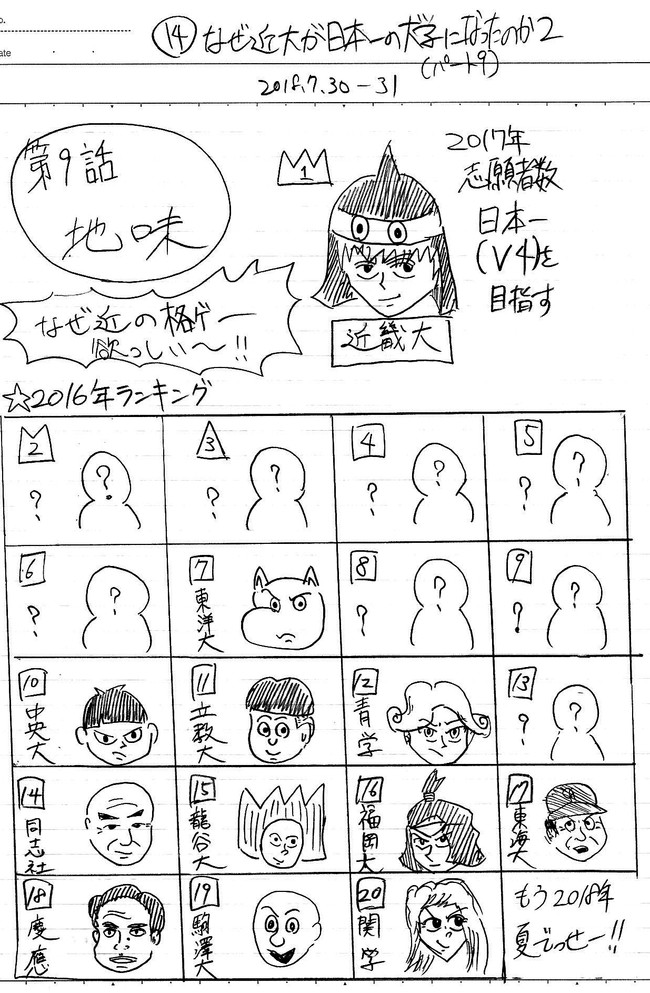 o.
ate
⑭なぜ近大が日本一の大学になったのか2
(パート9)
2018.7.30-31
第9話
地味
1
近畿大
2017年
志願者数
日本一
(V4)を
目指す
なぜ近の格ゲー
欲っしぃ〜!!
☆2016年ランキング
2 ? ?
3 ? ?
4 ? ?
5 ? ?
6 ? ?
7 東洋大
8 ? ?
9 ? ?
10 中央大
11 立教大
12 青学
13 ? ?
14 同志社
15 龍谷大
16 福岡大
17 東海大
18 慶應
19 駒澤大
20 関学
もう2018年
夏でっせー!!